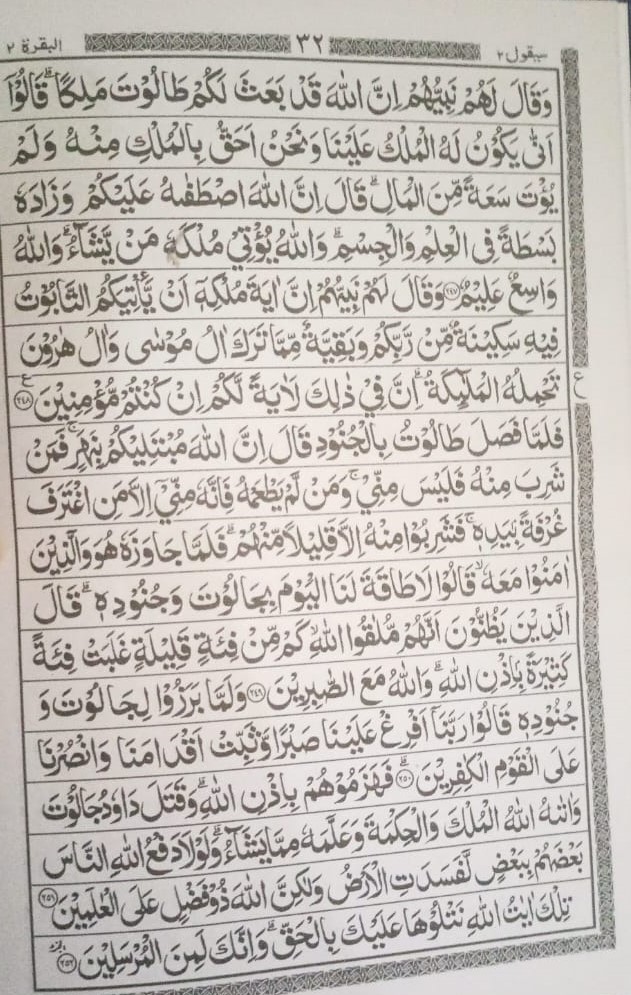 سیقول ۲ ۳۲ البقرة ۲
وَقَالَ لَهُمْ نَبِيُّهُمْ اِنَّ اللّٰهَ قَدْ بَعَثَ لَكُمْ طَالُوْتَ مَلِكًا ؕ قَالُوْٓا
اَنّٰى يَكُوْنُ لَهُ الْمُلْكُ عَلَيْنَا وَنَحْنُ اَحَقُّ بِالْمُلْكِ مِنْهُ وَلَمْ
يُؤْتَ سَعَةً مِّنَ الْمَالِ ؕ قَالَ اِنَّ اللّٰهَ اصْطَفٰىهُ عَلَيْكُمْ وَزَادَهٗ
بَسْطَةً فِى الْعِلْمِ وَالْجِسْمِ ؕ وَاللّٰهُ يُؤْتِيْ مُلْكَهٗ مَنْ يَّشَآءُ ؕ وَاللّٰهُ
وَاسِعٌ عَلِيْمٌ ﴿۲۴۷﴾ وَقَالَ لَهُمْ نَبِيُّهُمْ اِنَّ اٰيَةَ مُلْكِهٖٓ اَنْ يَّاْتِيَكُمُ التَّابُوْتُ
فِيْهِ سَكِيْنَةٌ مِّنْ رَّبِّكُمْ وَبَقِيَّةٌ مِّمَّا تَرَكَ اٰلُ مُوْسٰى وَاٰلُ هٰرُوْنَ
تَحْمِلُهُ الْمَلٰٓئِكَةُ ؕ اِنَّ فِيْ ذٰلِكَ لَاٰيَةً لَّكُمْ اِنْ كُنْتُمْ مُّؤْمِنِيْنَ ﴿۲۴۸﴾ ع
فَلَمَّا فَصَلَ طَالُوْتُ بِالْجُنُوْدِ قَالَ اِنَّ اللّٰهَ مُبْتَلِيْكُمْ بِنَهَرٍ ۚ فَمَنْ
شَرِبَ مِنْهُ فَلَيْسَ مِنِّيْ ۚ وَمَنْ لَّمْ يَطْعَمْهُ فَاِنَّهٗ مِنِّيْٓ اِلَّا مَنِ اغْتَرَفَ
غُرْفَةًۢ بِيَدِهٖ ۚ فَشَرِبُوْا مِنْهُ اِلَّا قَلِيْلًا مِّنْهُمْ ؕ فَلَمَّا جَاوَزَهٗ هُوَ وَالَّذِيْنَ
اٰمَنُوْا مَعَهٗ ۙ قَالُوْا لَا طَاقَةَ لَنَا الْيَوْمَ بِجَالُوْتَ وَجُنُوْدِهٖ ؕ قَالَ
الَّذِيْنَ يَظُنُّوْنَ اَنَّهُمْ مُّلٰقُوا اللّٰهِ ۙ كَمْ مِّنْ فِئَةٍ قَلِيْلَةٍ غَلَبَتْ فِئَةً
كَثِيْرَةًۢ بِاِذْنِ اللّٰهِ ؕ وَاللّٰهُ مَعَ الصّٰبِرِيْنَ ﴿۲۴۹﴾ وَلَمَّا بَرَزُوْا لِجَالُوْتَ وَ
جُنُوْدِهٖ قَالُوْا رَبَّنَآ اَفْرِغْ عَلَيْنَا صَبْرًا وَّثَبِّتْ اَقْدَامَنَا وَانْصُرْنَا
عَلَى الْقَوْمِ الْكٰفِرِيْنَ ﴿۲۵۰﴾ فَهَزَمُوْهُمْ بِاِذْنِ اللّٰهِ ۙ وَقَتَلَ دَاوٗدُ جَالُوْتَ
وَاٰتٰىهُ اللّٰهُ الْمُلْكَ وَالْحِكْمَةَ وَعَلَّمَهٗ مِمَّا يَشَآءُ ؕ وَلَوْلَا دَفْعُ اللّٰهِ النَّاسَ
بَعْضَهُمْ بِبَعْضٍ لَّفَسَدَتِ الْاَرْضُ وَلٰكِنَّ اللّٰهَ ذُوْ فَضْلٍ عَلَى الْعٰلَمِيْنَ ﴿۲۵۱﴾
تِلْكَ اٰيٰتُ اللّٰهِ نَتْلُوْهَا عَلَيْكَ بِالْحَقِّ ؕ وَاِنَّكَ لَمِنَ الْمُرْسَلِيْنَ ﴿۲۵۲﴾